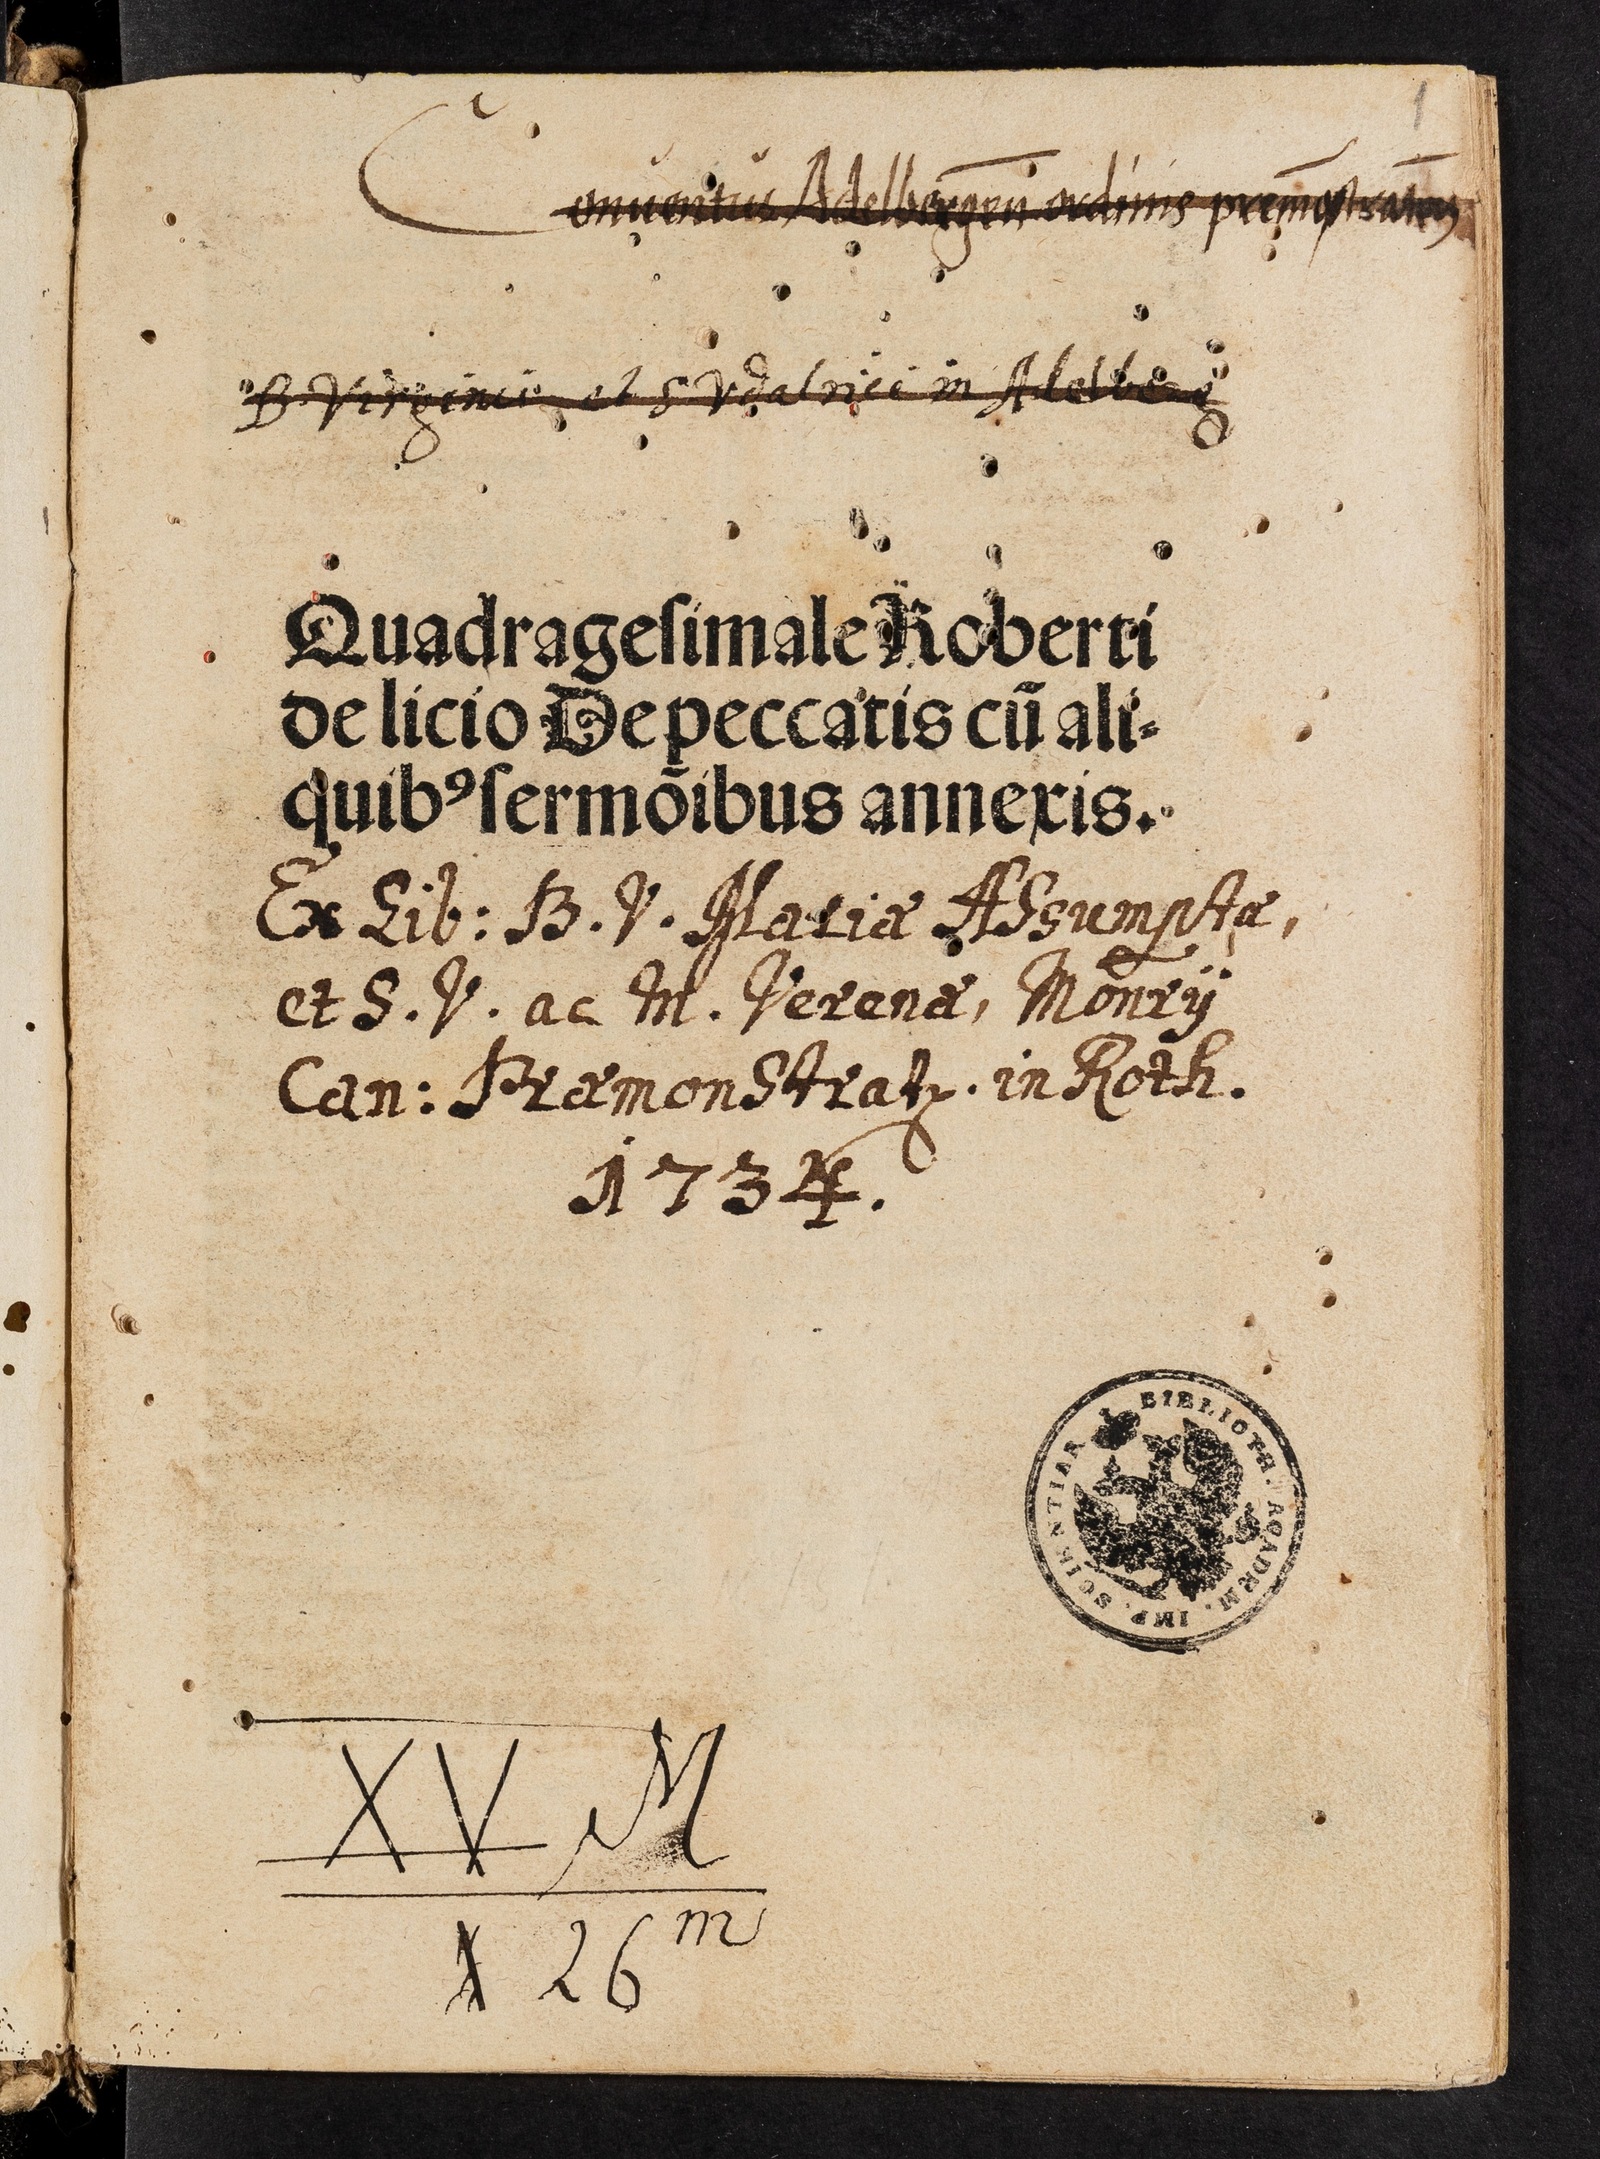 1
Conuentus Adelbergen̄ ordinis premōstraten̄
B. Virginis et S Vdalrici in Adelberg
Quadrageſimale Roberti
de licio De peccatis cū ali⸗
quibꝰ ſermōibus annexis.
Ex Lib: B. V. Mariæ Assumptæ,
et S. V. ac M. Verenæ, Mōnrÿ
Can: Præmonstrat. in Roth.
1734.
BIBLIOTH. ACADEM. IMP. SCIENTIAR
XV M
X 26 m